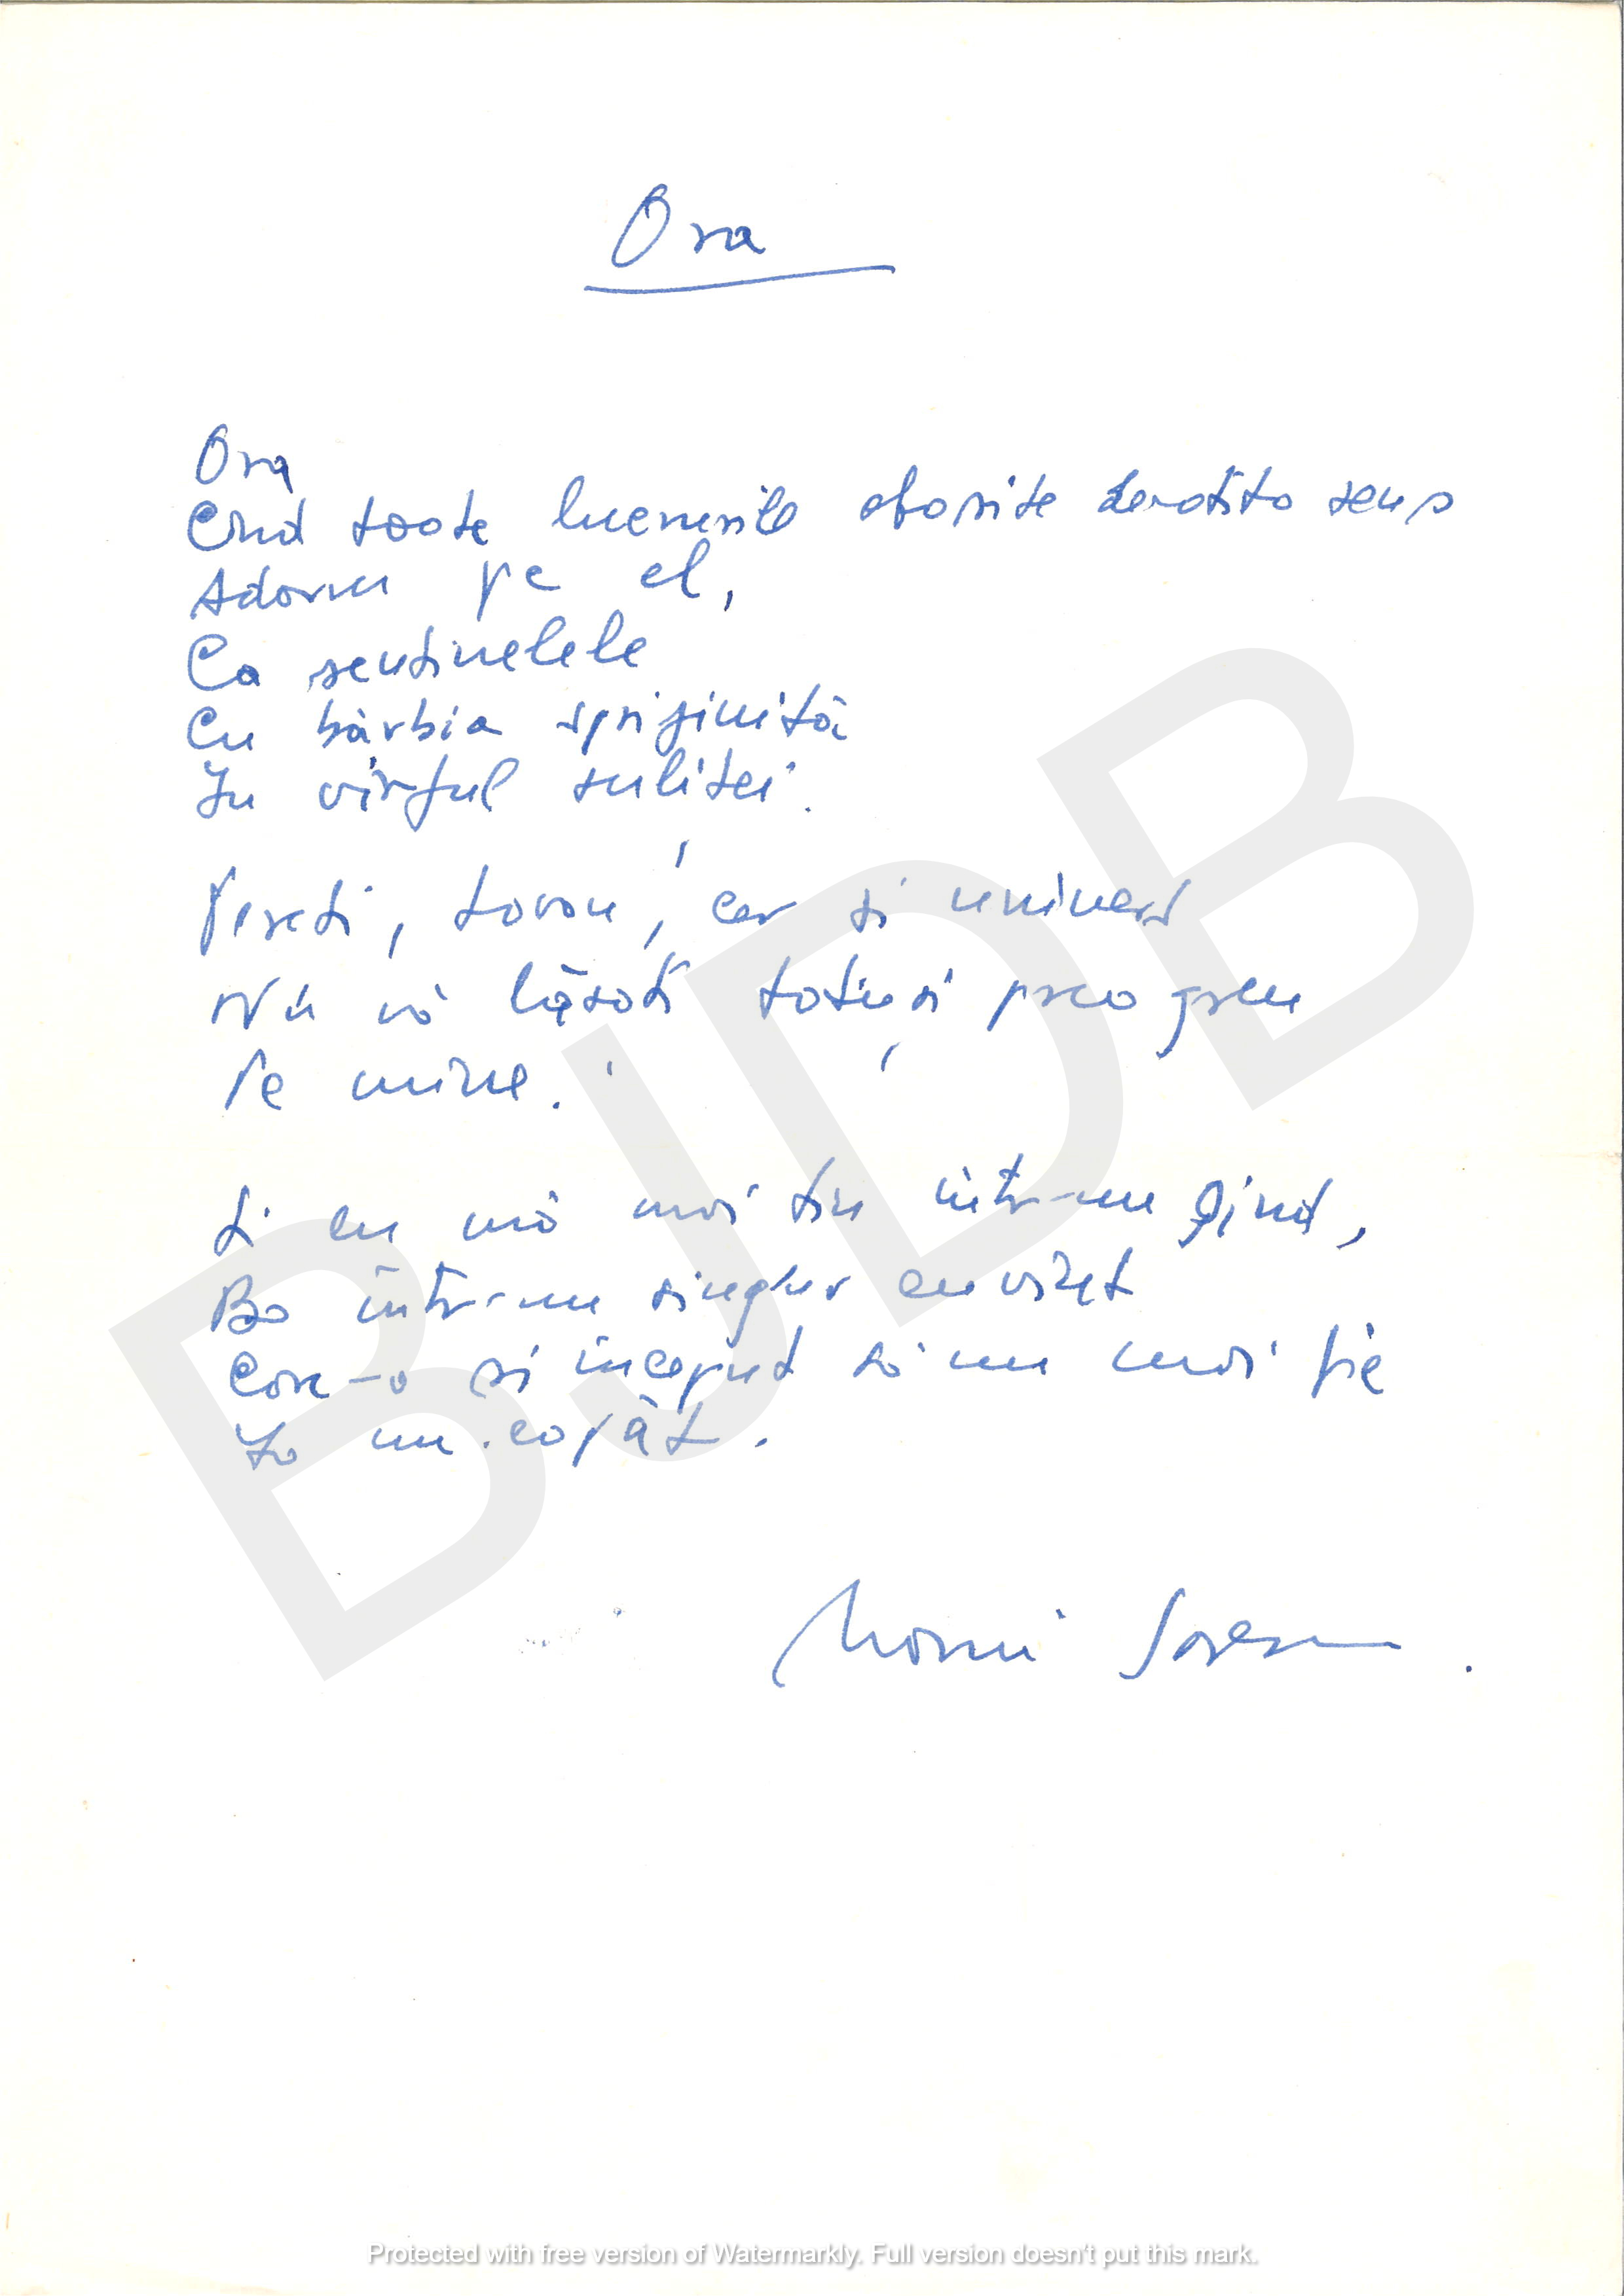 Ora
Ora
Cînd toate lucrurile obosite de-atîta sens
Adorm pe el,
Ca sentinelele
Cu bărbia sprijinită
În vîrful suliței.
Pereți, tavan, cer și univers
Nu vă lăsați totuși prea greu
Pe mine.
Și eu mă mai țin într-un gînd,
Ba într-un singur cuvînt
Care-a și început să nu mai fie
La un capăt.
Marin Sorescu.
BJDB
Protected with free version of Watermarkly. Full version doesn't put this mark.